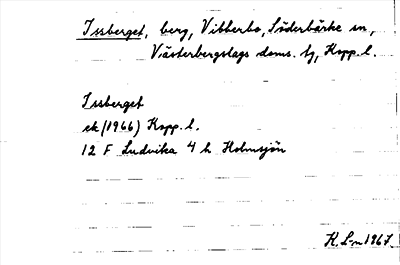 Issberget, berg, Vibberbo, Söderbärke sn,
Västerbergslags doms. tg, Kopp. l.
Issberget
ek (1966) Kopp. l.
12 F Ludvika 4 h Holmsjön
K. L-n 1967.